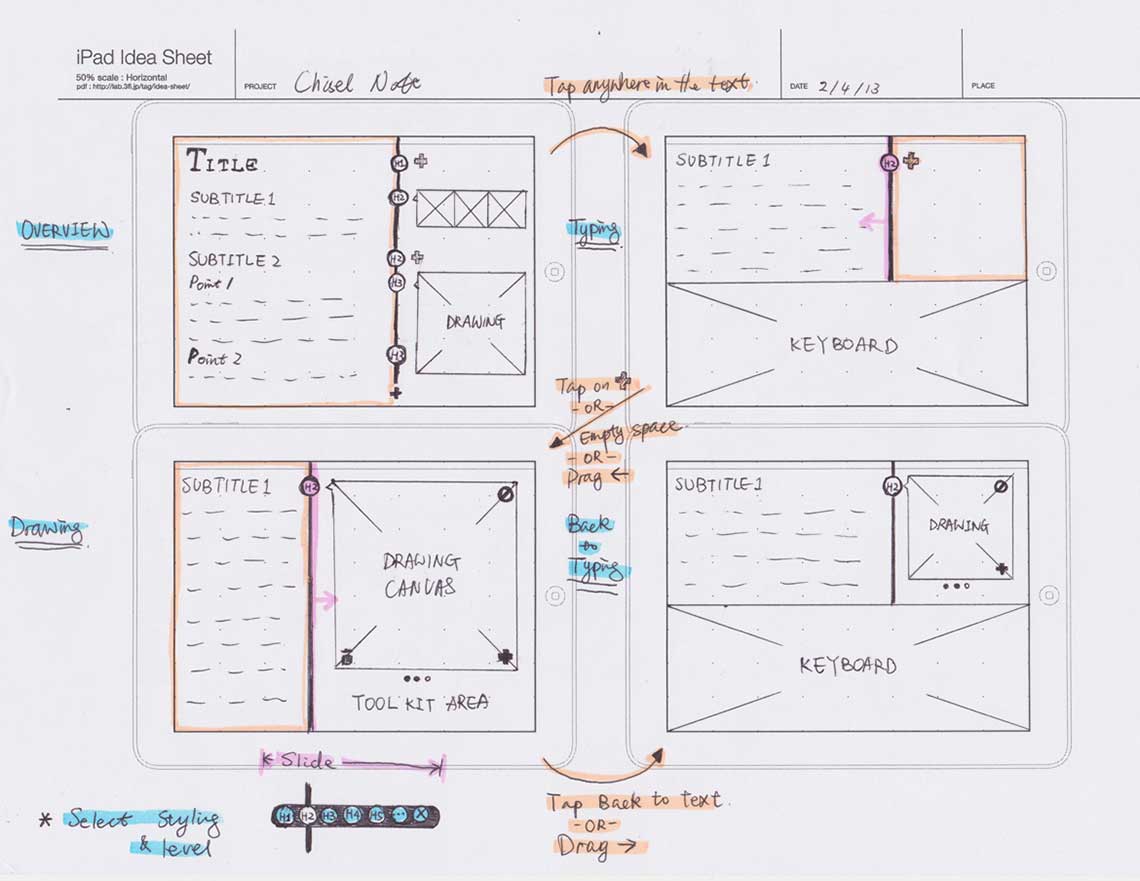 iPad Idea Sheet
50% scale : Horizontal
pdf : http://lab.3fl.jp/tag/idea-sheet/
PROJECT Chisel Note
Tap anywhere in the text.
DATE 2/4/13
PLACE
OVERVIEW
TITLE
H1
SUBTITLE 1
H2
SUBTITLE 2
H2
Point 1
H3
DRAWING
Point 2
H3
Typing
SUBTITLE 1
H2
KEYBOARD
Tap on +
-OR-
Empty space
-OR-
Drag ←
Drawing
SUBTITLE 1
H2
DRAWING
CANVAS
TOOL KIT AREA
Back
to
Typing
SUBTITLE 1
H2
DRAWING
KEYBOARD
Slide
* Select Styling
& level
H1 H2 H3 H4 H5 ... X
Tap Back to text.
-OR-
Drag →